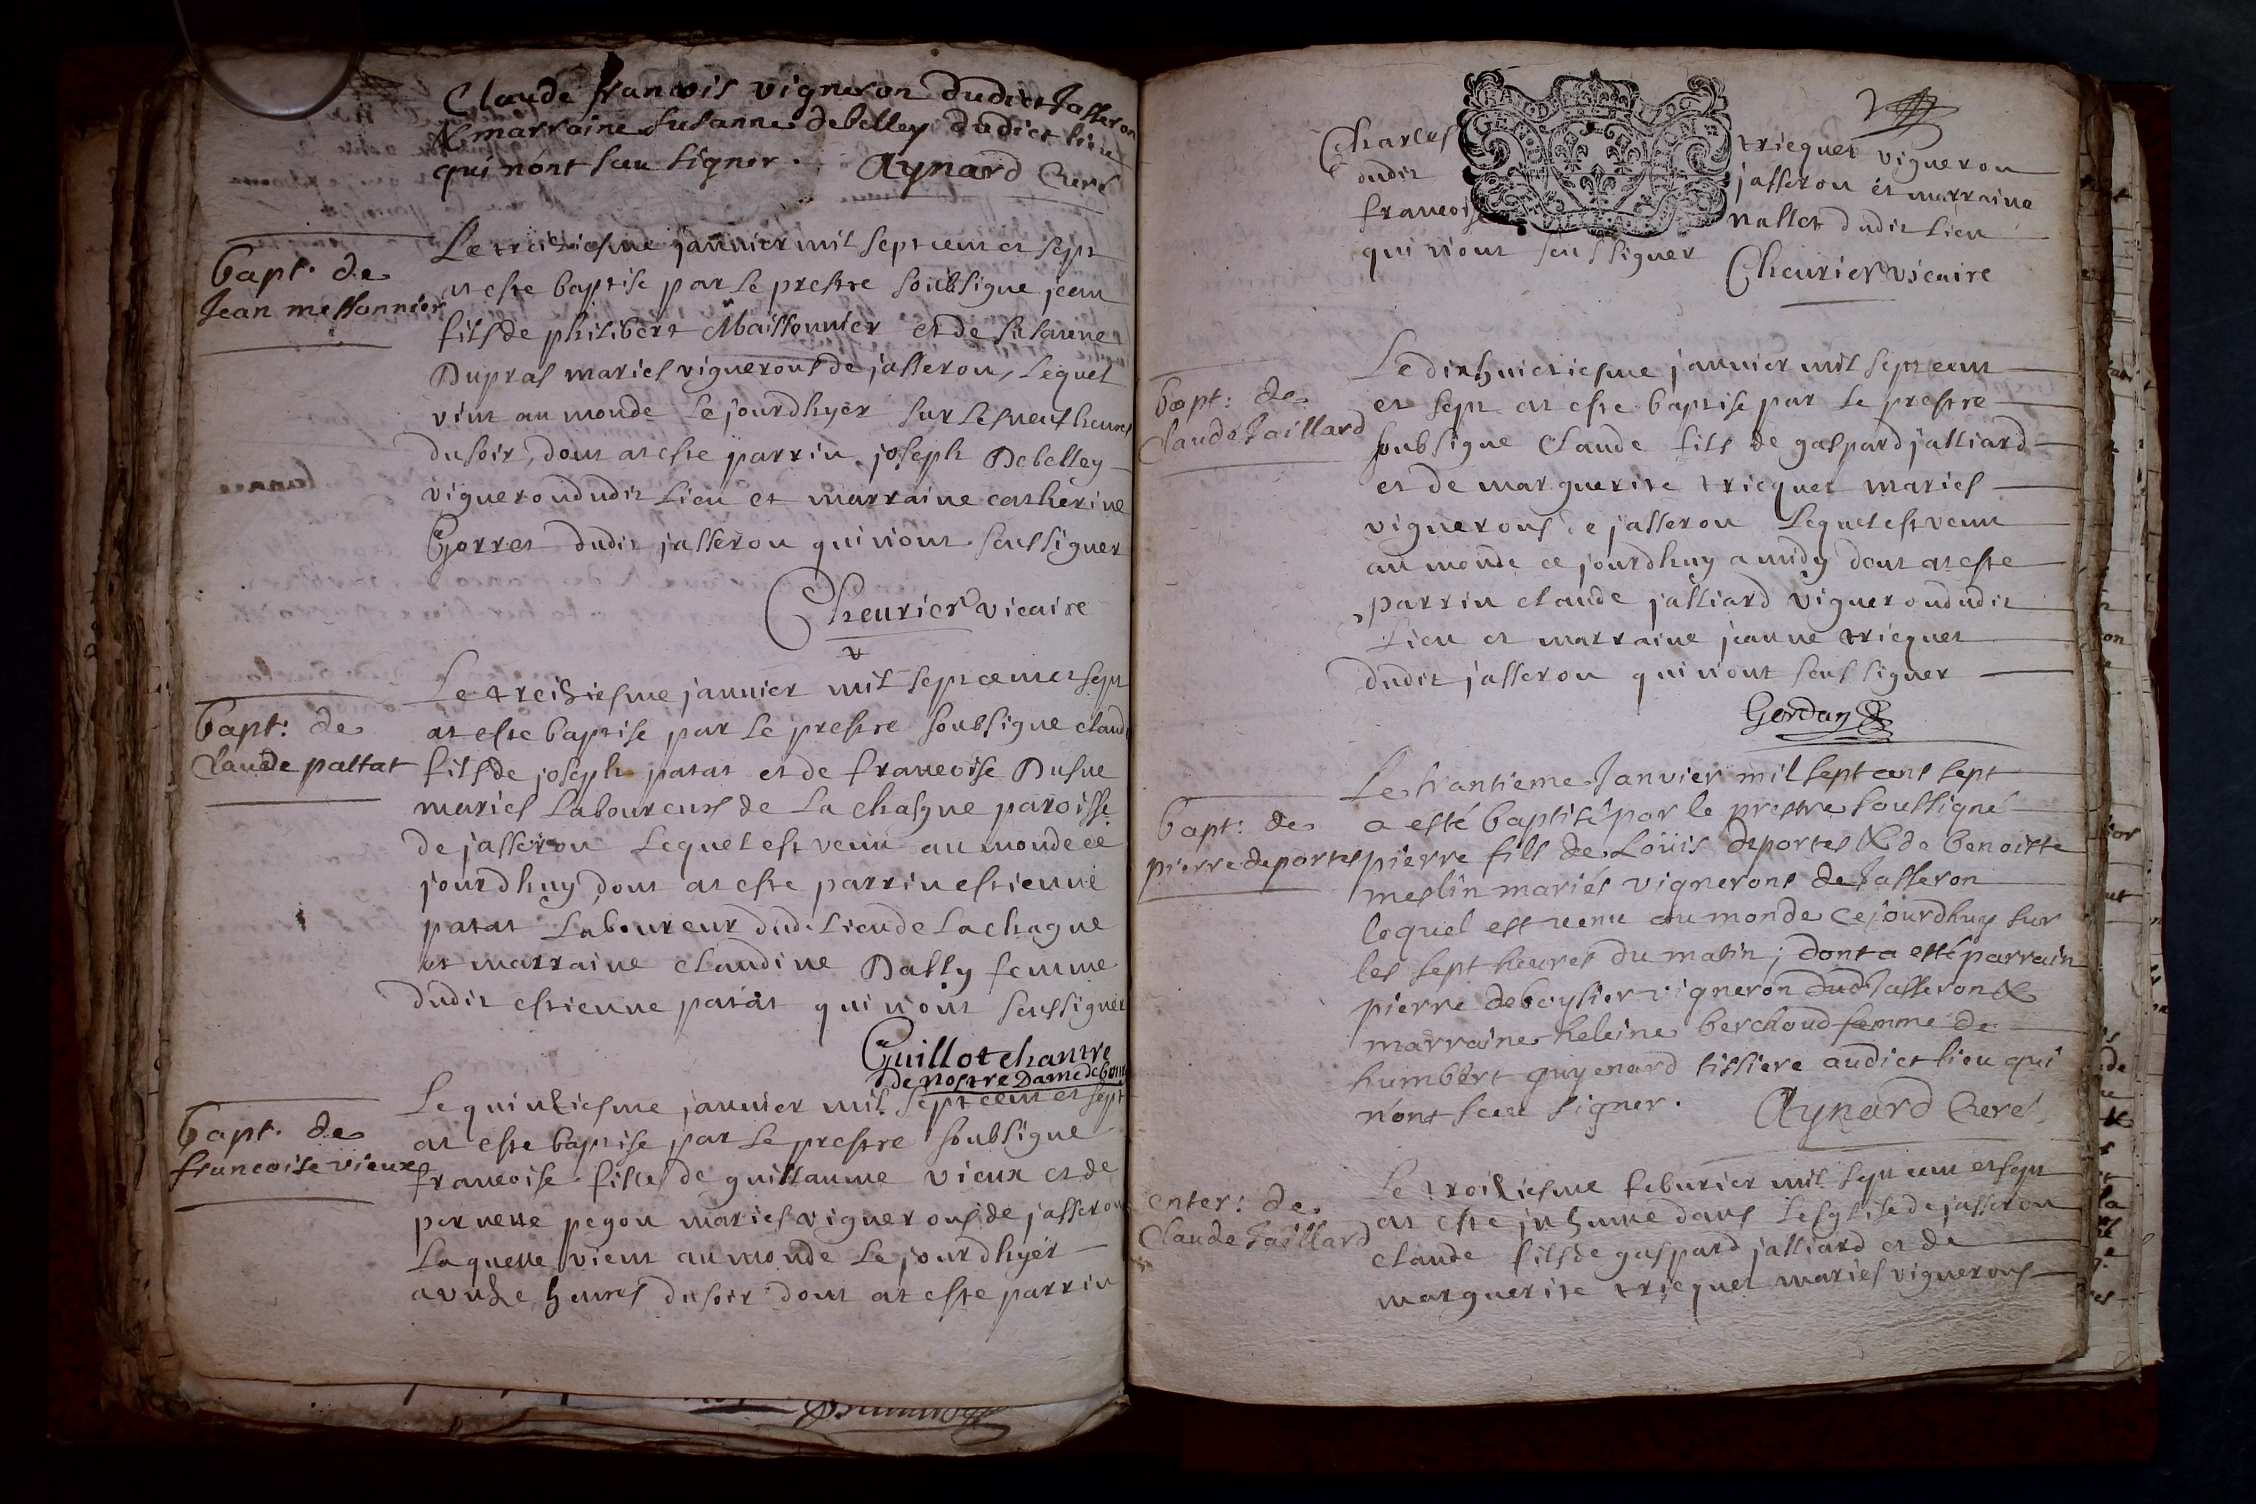 Claude francois vigneron dudict Jasseron
& marraine Susanne debelley dudict lieu
qui n'ont sceu signer. Aynard Curé
bapt. de
Jean messonnier
Le treiziesme janvier mil sept cent et sept
at este baptise par le prestre soubsigne jean
fils de philibert Maissonnier et de susanne
Dupras maries vignerons de jasseron, lequel
vint au monde le jourdhyer sur les neuf heures
du soir, dont at este parrin joseph Debelley
vigneron dudit lieu et marraine catherine
Gorret dudit jasseron qui n'ont seus signer
Cheurier vicaire
bapt: de
Claude pattat
Le treiziesme janvier mil sept cent et sept
at este baptise par le prestre soubsigne claude
fils de joseph patat et de francoise Dufue
maries Laboureurs de La chasgne paroisse
de jasseron Lequel est venu au monde ce
jourdhuy, dont at este parrin estienne
patat Laboureur dud. Lieu de La chagne
et marraine claudine Dally femme
dudit estienne patat qui n'ont seus signer
Guillot chantre
de nostre Dame de bourg
bapt. de
francoise vieux
Le quinziesme janvier mil sept cent et sept
at este baptise par le prestre soubsigne
francoise fille de guillaume vieux et de
pernette pegon maries vignerons de jasseron
Laquelle vient au monde le jourdhyer
a unze heures du soir dont at este parrin
2
Charles tricquet vigneron
dudit jasseron et marraine
francoise nallet dudit lieu
qui n'ont seus signer
Cheurier vicaire
bapt: de
Claude Jaillard
Le dixhuictiesme janvier mil sept cent
et sept at este baptise par le prestre
soubsigne Claude fils de gaspard jalliard
et de marguerite tricquet maries
vignerons de jasseron Lequel est venu
au monde ce jourdhuy a midy dont at este
parrin claude jalliard vigneron dudit
Lieu et marraine jeanne tricquet
dudit jasseron qui n'ont seus signer
Gordan
bapt: de
pierre deportes
Le trantieme Janvier mil sept cent sept
a esté baptisé par le prestre soussigné
pierre fils de Loüis deportes & de benoiste
meslin mariés vignerons de Jasseron
lequel est venu au monde cejourdhuy sur
les sept heures du matin; dont a esté parrain
pierre deboysier vigneron dud Jasseron &
marraine heleine berchoud femme de
humbert guyenard tissiere audict lieu qui
n'ont sceu signer. Aynard Curé
enter: de
Claude Jaillard
Le troiziesme feburier mil sept cent et sept
at este inhume dans Lesglise de jasseron
claude fils de gaspard jalliard et de
marguerite tricquet maries vignerons